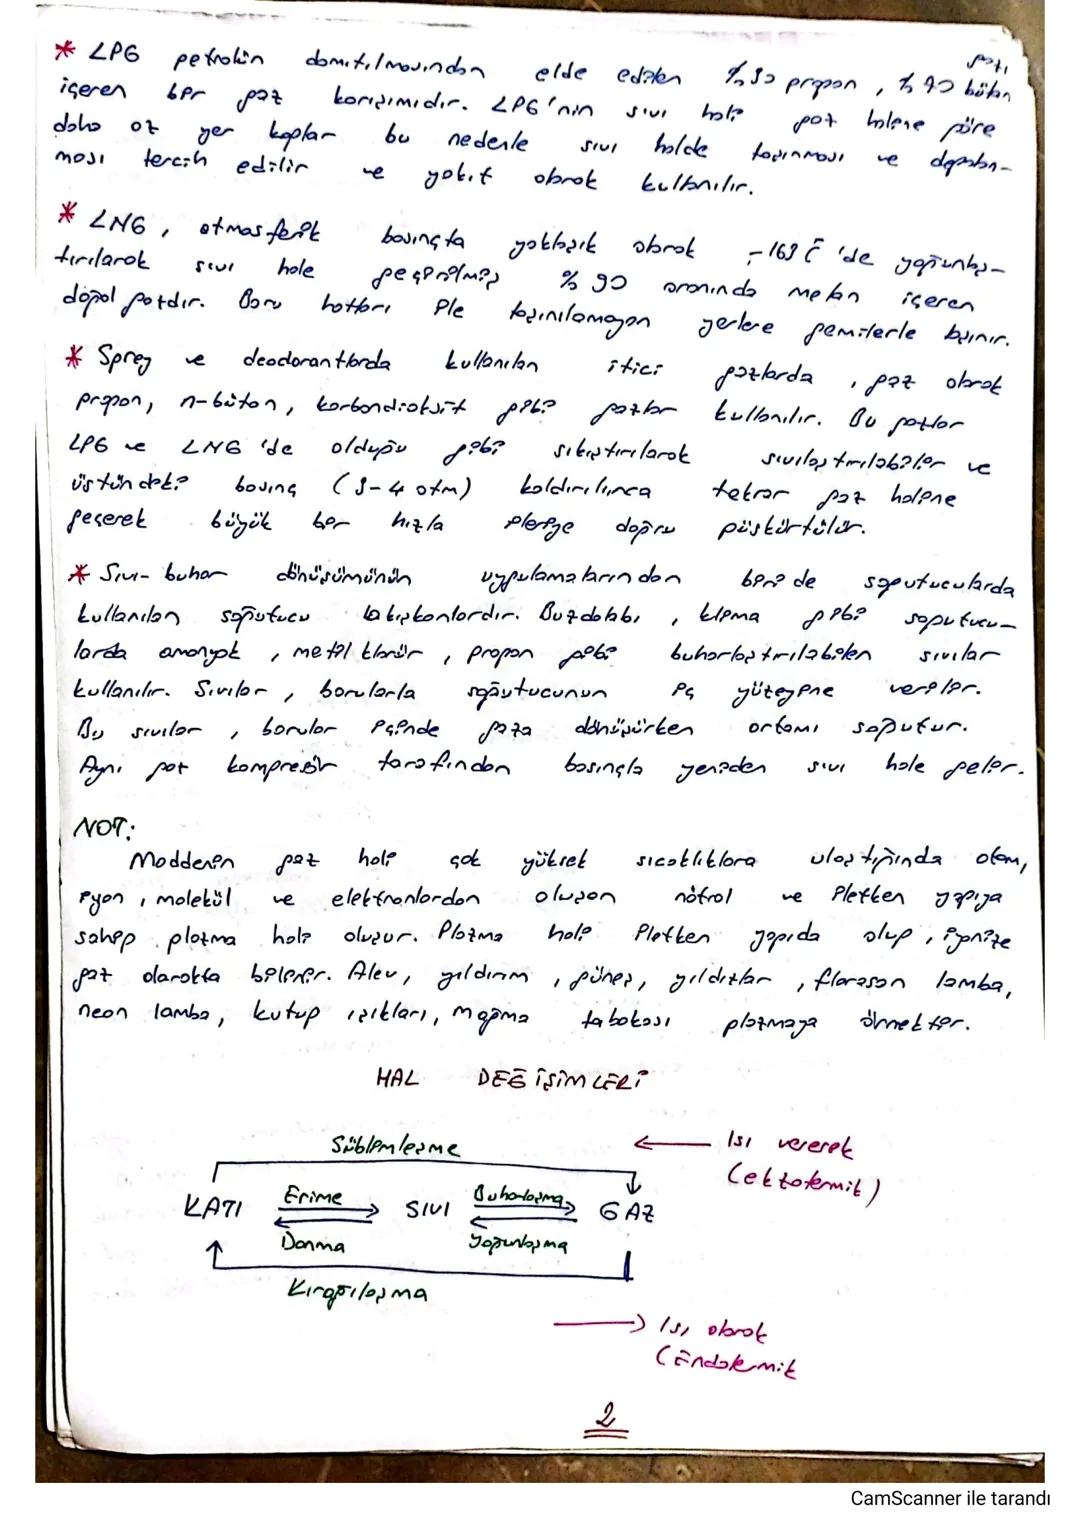 * LPG petrolün damıtılmasından elde edilen %30 propan, %70 bütan gazı
içeren bir gaz karışımıdır. LPG'nin sıvı hali gaz haline göre
daha az yer kaplar bu nedenle sıvı halde taşınması ve depolan-
ması tercih edilir ve yakıt olarak kullanılır.
* LNG, atmosferik basınçta yaklaşık olarak -163 C 'de yoğunlaş-
tırılarak sıvı hale geçirilmiş %90 oranında metan içeren
doğal gazdır. Boru hatları ile taşınılamayan yerlere gemilerle taşınır.
* Sprey ve deodorantlarda kullanılan itici gazlarda, gaz olarak
propan, n-bütan, karbondioksit gibi gazlar kullanılır. Bu gazlar
LPG ve LNG 'de olduğu gibi sıkıştırılarak sıvılaştırılabilir ve
üstündeki basınç (3-4 atm) kaldırılınca tekrar gaz haline
geçerek büyük bir hızla ileriye doğru püskürtülür.
* Sıvı-buhar dönüşümünün uygulamalarından biri de soğutucularda
kullanılan soğutucu akışkanlardır. Buzdolabı, klima gibi soğutucu-
larda amonyak, metil klorür, propan gibi buharlaştırılabilen sıvılar
kullanılır. Sıvılar, borularla soğutucunun iç yüzeyine verilir.
Bu sıvılar, borular içinde gaza dönüşürken ortamı soğutur.
Aynı gaz kompresör tarafından basınçla yeniden sıvı hale gelir.
NOT:
Maddenin gaz hali çok yüksek sıcaklıklara ulaştığında atom,
iyon, molekül ve elektronlardan oluşan nötral ve iletken yapıya
sahip plazma hali oluşur. Plazma hali iletken yapıda olup, iyonize
gaz olarakta bilinir. Alev, yıldırım, güneş, yıldızlar, florasan lamba,
neon lamba, kutup ışıkları, magma tabakası plazmaya örnektir.
HAL DEĞİŞİMLERİ
Süblimleşme
← Isı vererek
(ekzotermik)
KATI Erime SIVI Buharlaşma GAZ
Donma Yoğunlaşma
Kırağılaşma
→ Isı alarak
(Endotermik
2
CamScanner ile tarandı